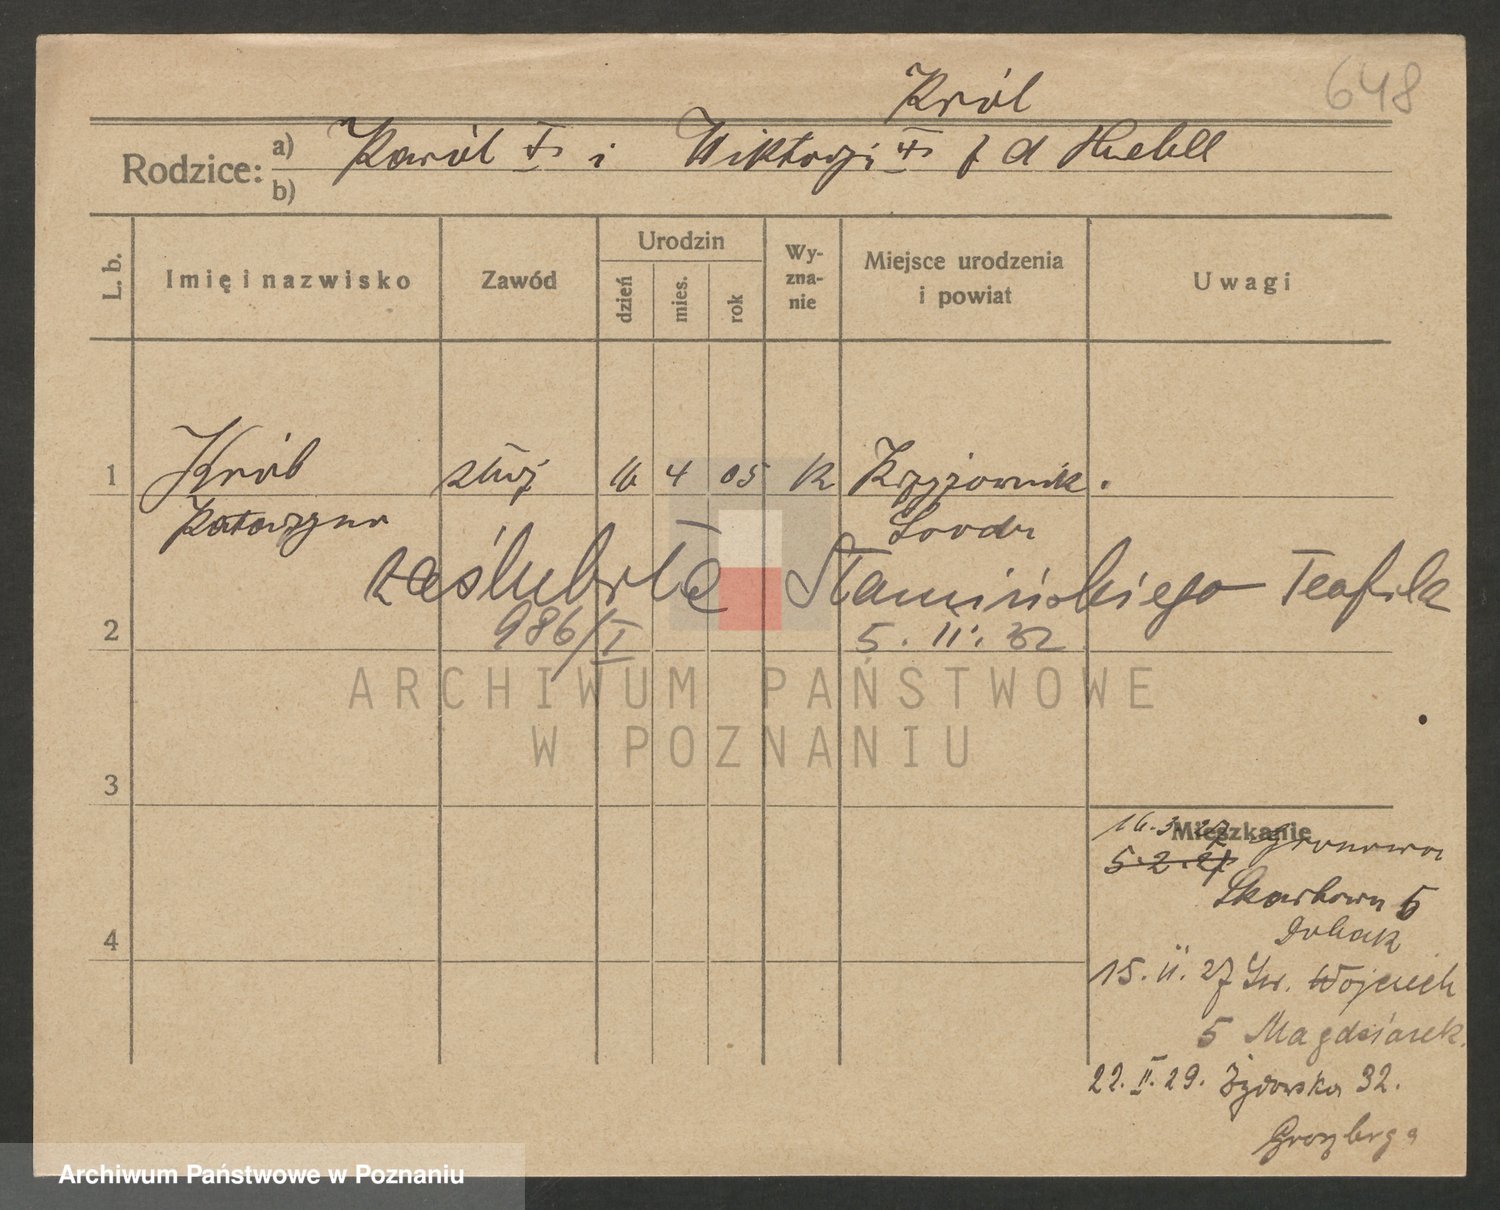 648
Król
Rodzice: a) Karól i Wiktorji d Huebll
b)
L. b. Imię i nazwisko Zawód Urodzin dzień mies. rok Wy-zna-nie Miejsce urodzenia i powiat Uwagi
1 Król służ 16 4 05 K Krzyżownik.
Katarzyna Środa
zaślubiła Stamińskiego Teofila
2 986/I 5. II. 32
ARCHIWUM PAŃSTWOWE
W POZNANIU
3
Mieszkanie
16.3.27 Gronowa
5.2.27
Skarbowa 5
4
15. II. 27 Św. Wojciech
5 Magdziarek.
22. II. 29. Żydowska 32.
Archiwum Państwowe w Poznaniu